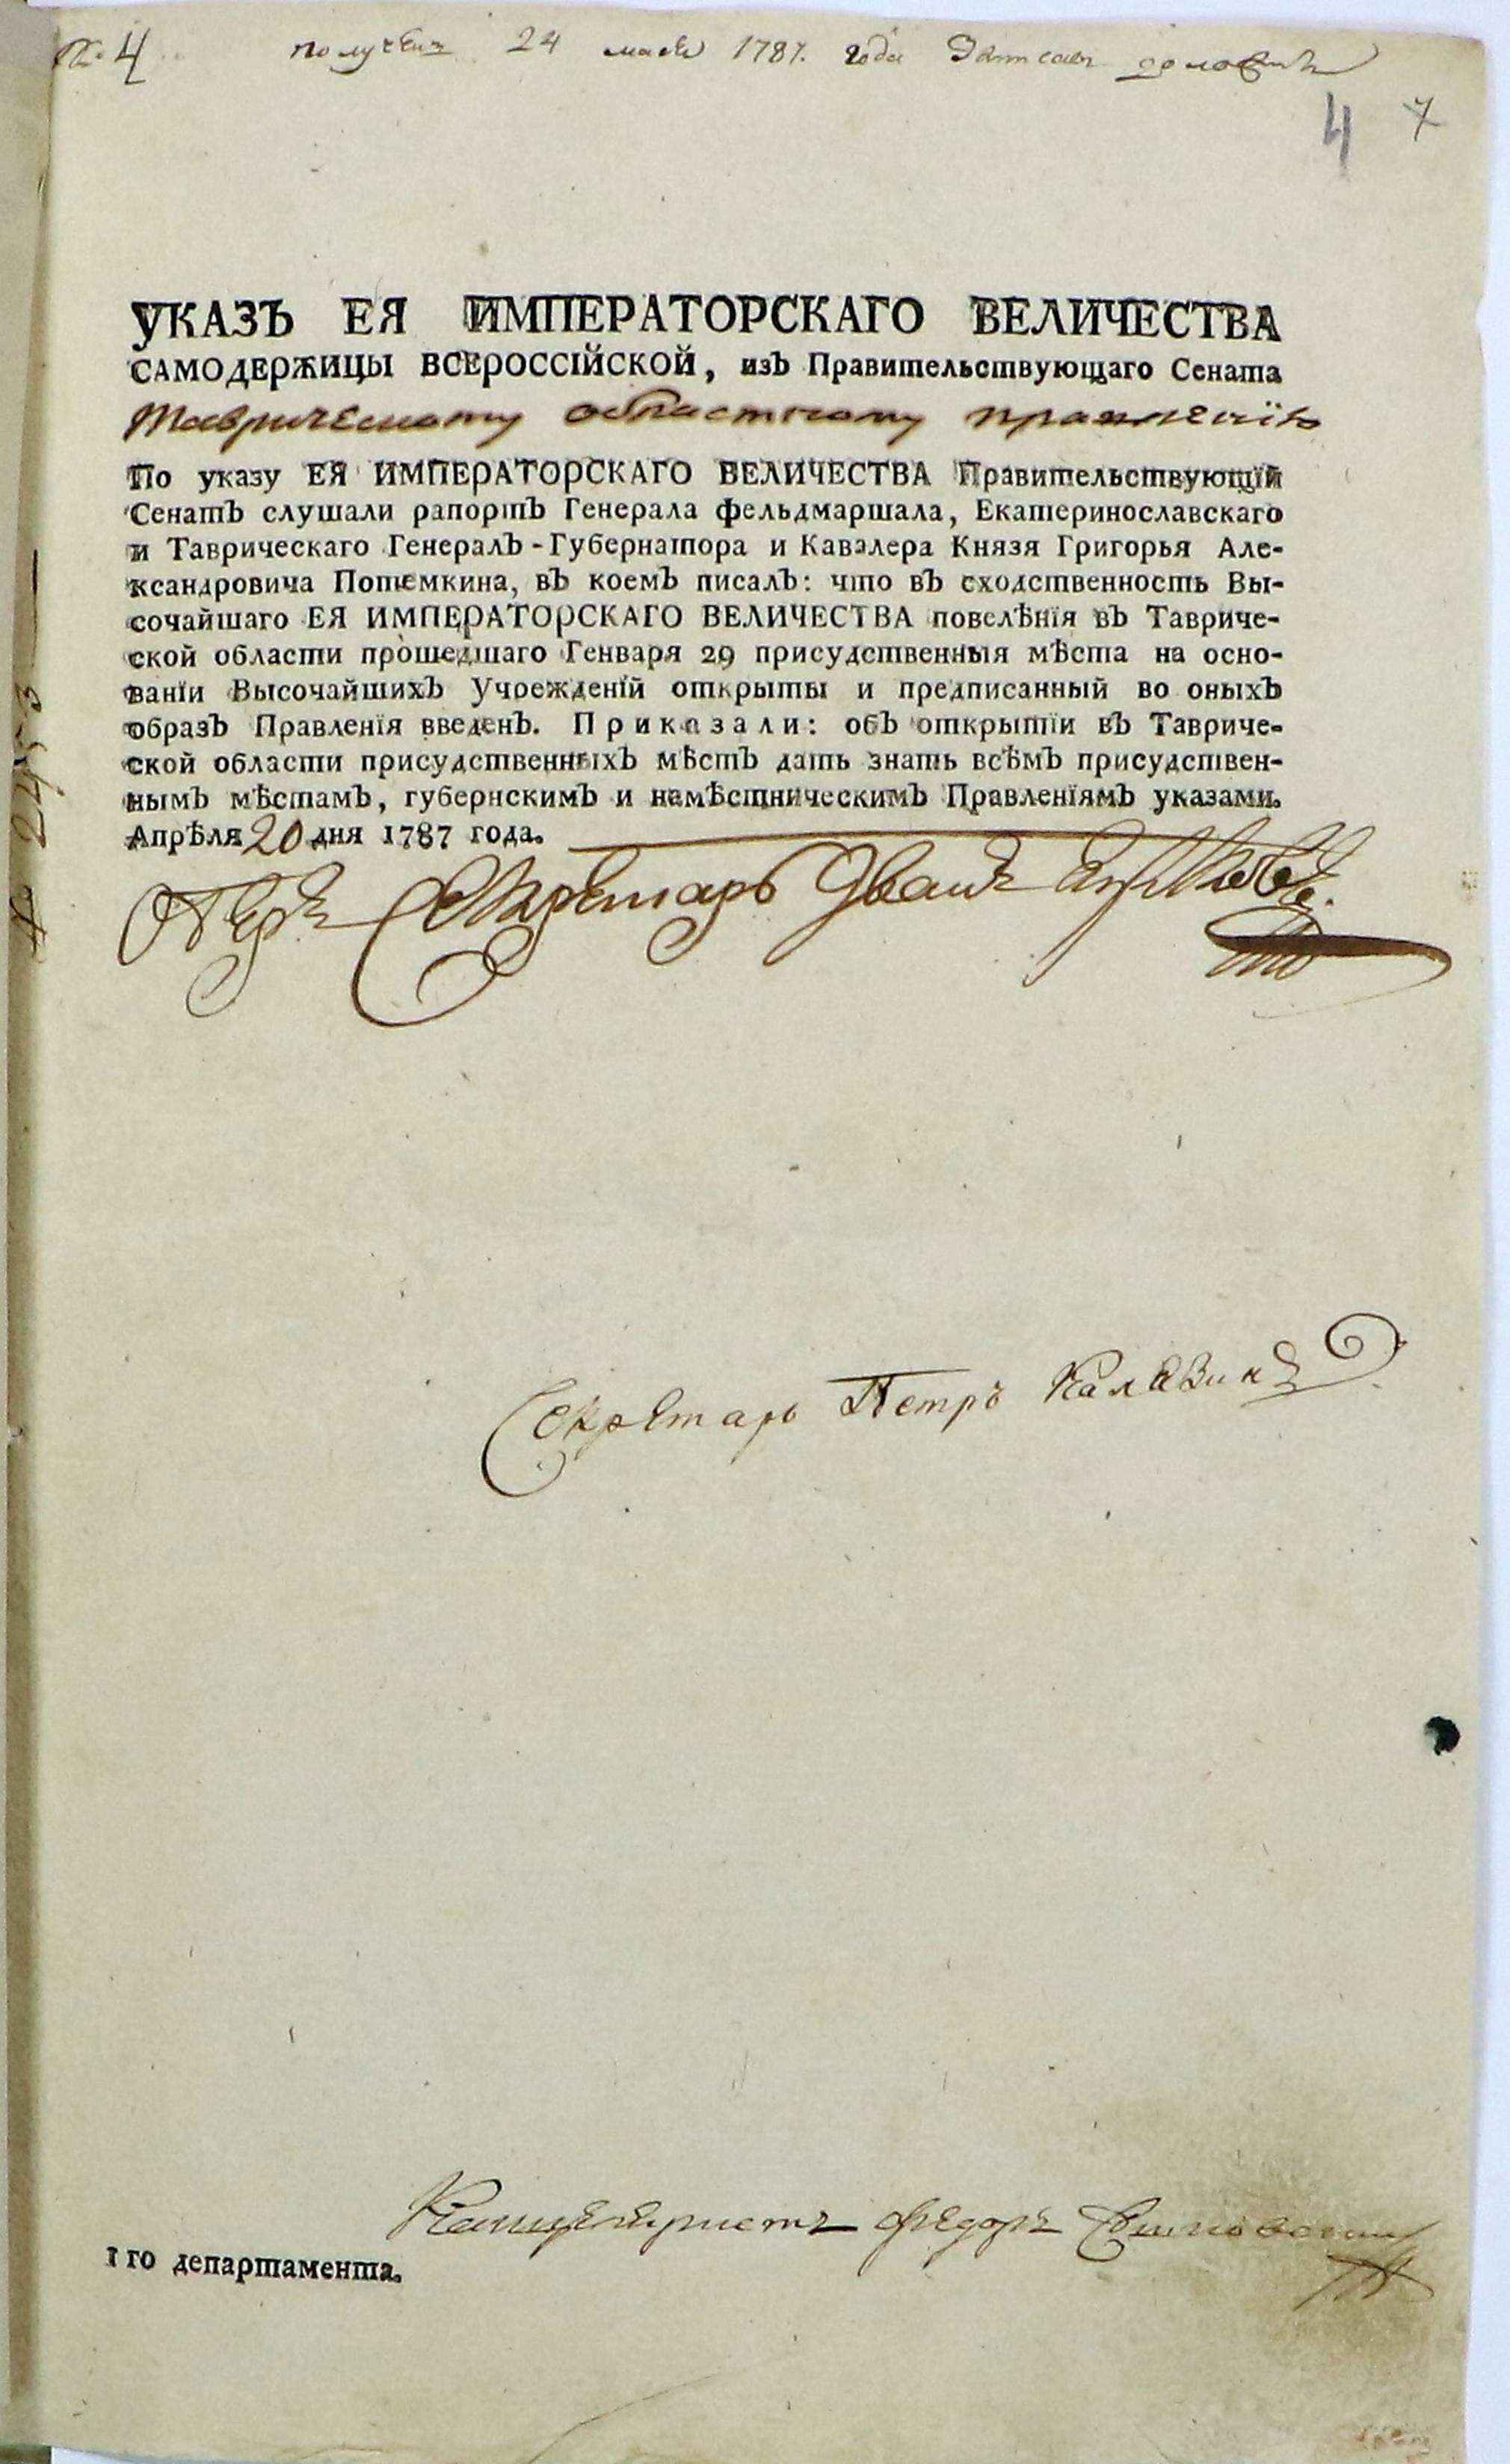 № 4 получен 24 маия 1787. года
4 7
УКАЗЪ ЕЯ ИМПЕРАТОРСКАГО ВЕЛИЧЕСТВА
САМОДЕРЖИЦЫ ВСЕРОССІЙСКОЙ, изЪ Правительствующаго Сената
Таврическому областному правленїю
По указу ЕЯ ИМПЕРАТОРСКАГО ВЕЛИЧЕСТВА Правительствующїй
СенатЪ слушали рапортЪ Генерала фельдмаршала, Екатеринославскаго
и Таврическаго ГенералЪ-Губернатора и Кавалера Князя Григорья Але-
ксандровича Потемкина, вЪ коемЪ писалЪ: что вЪ сходственность Вы-
сочайшаго ЕЯ ИМПЕРАТОРСКАГО ВЕЛИЧЕСТВА повелѣнїя вЪ Тавриче-
ской области прошедшаго Генваря 29 присудственныя мѣста на осно-
ванїи ВысочайшихЪ Учрежденїй открыты и предписанный во оныхЪ
образЪ Правленїя введенЪ. Приказали: обЪ открытїи вЪ Тавриче-
ской области присудственныхЪ мѣстЪ дать знать всѣмЪ присудствен-
нымЪ мѣстамЪ, губернскимЪ и намѣстническимЪ ПравленїямЪ указами.
Апрѣля 20 дня 1787 года.
Оберъ Секретарь Иванъ
Секретарь Петръ
Канцеляристъ Федоръ
1 го департамента.